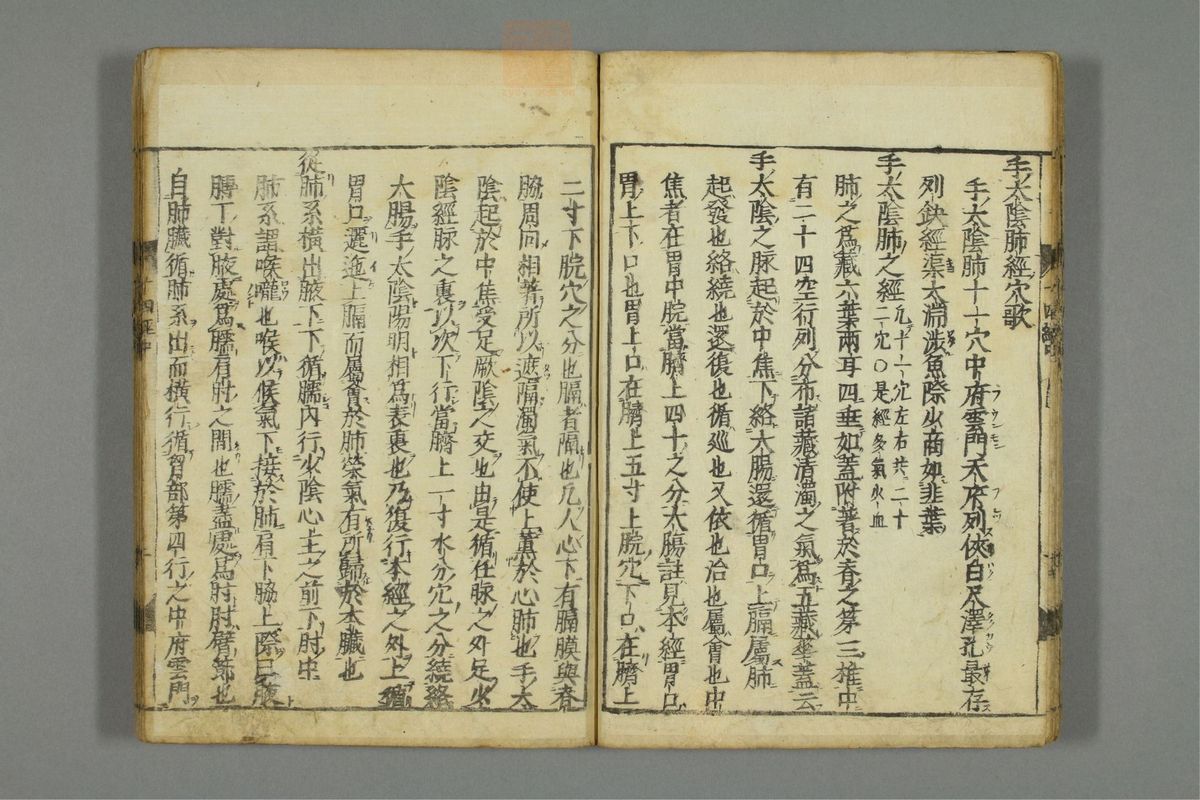 手太陰肺經穴歌
手太陰肺十一穴中府雲門天府列俠白尺澤孔最存
列缺經渠太淵涉魚際少商如韭葉
手太陰肺之經凡十一穴左右共二十二穴○是經多氣少血
肺之爲藏六葉兩耳四垂如蓋附著於脊之第三椎中
有二十四空行列分布諸藏清濁之氣爲五藏華蓋云
手太陰之脉起於中焦下絡大腸還循胃口上膈屬肺
起發也絡繞也還復也循巡也又依也沿也屬會也中
焦者在胃中脘當臍上四寸之分大腸註見本經胃口
胃上下口也胃上口在臍上五寸上脘穴下口在臍上
二寸下脘穴之分也膈者隔也凡人心下有膈膜與脊
脇周回相著所以遮隔濁氣不使上薰於心肺也手太
陰起於中焦受足厥陰之交也由是循任脉之外足少
陰經脉之裏以次下行當臍上一寸水分穴之分繞絡
大腸手太陰陽明相爲表裏也乃復行本經之外上循
胃口邐迤上膈而屬會於肺榮氣有所歸於本臟也
從肺系横出腋下下循臑内行少陰心主之前下肘中
肺系謂喉嚨也喉以候氣下接於肺肩下脇上際曰腋
膊下對腋處爲臑肩肘之間也臑盡處爲肘肘臂節也
自肺臟循肺系出而横行循胷部第四行之中府雲門